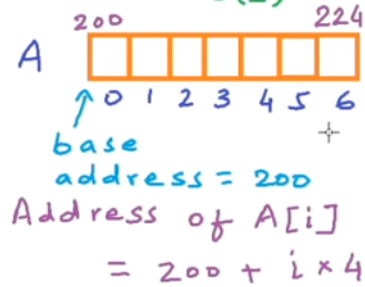 200 224
A
0 1 2 3 4 5 6
base
address = 200
Address of A[i]
= 200 + i × 4